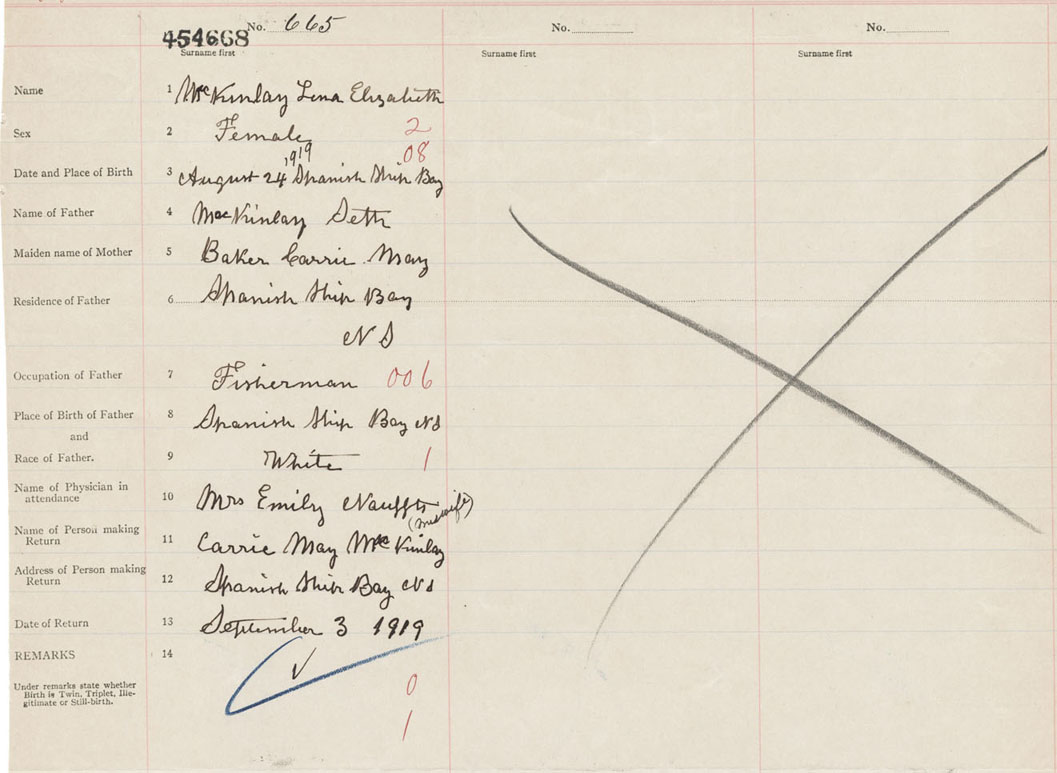 No. 665 No. No.
454668
Surname first Surname first Surname first
Name 1 McKinlay Lena Elizabeth
Sex 2 Female 2
1919 08
Date and Place of Birth 3 August 24 Spanish Ship Bay
Name of Father 4 MacKinlay Seth
Maiden name of Mother 5 Baker Carrie May
Residence of Father 6 Spanish Ship Bay
N S
Occupation of Father 7 Fisherman 006
Place of Birth of Father 8 Spanish Ship Bay N S
and
Race of Father. 9 White 1
Name of Physician in
attendance 10 Mrs Emily Nauffts
(midwife)
Name of Person making
Return 11 Carrie May McKinlay
Address of Person making
Return 12 Spanish Ship Bay N S
Date of Return 13 September 3 1919
REMARKS 14
Under remarks state whether
Birth is Twin, Triplet, Ille-
gitimate or Still-birth.
0
1